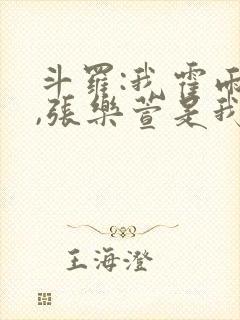 斗罗:我霍雨
,张乐萱是我
王海澄